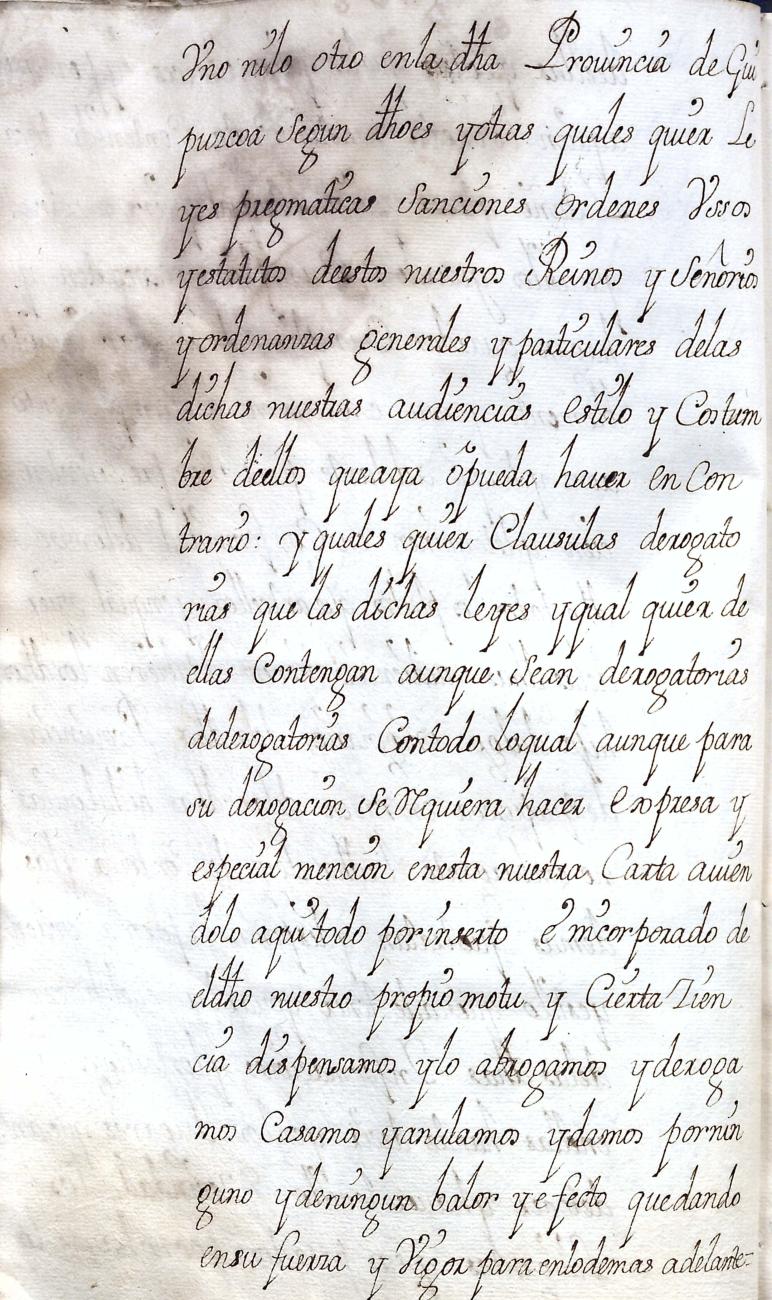 Vno nilo otro enla dha Prouincia de Gui
puzcoa Segun dhoes yotras quales quier Le
yes pregmaticas Sanciones ordenes Vssos
yestatutos deestos nuestros Reinos y Señorios
y ordenanzas generales y particulares delas
dichas nuestras audiencias estilo y Costum
bre deellos queaya ò pueda hauer en Con
trario: y quales quier Clausulas derogato
rias que las dichas leyes yqual quier de
ellas Contengan aunque Sean derogatorias
dederogatorias Contodo loqual aunque para
su derogacion Se Requiera hacer expresa y
especial mencion enesta nuestra Carta auien
dolo aqui todo por inserto è incorporado de
eldho nuestro propio motu y Cierta Zien
cia dispensamos ylo abrogamos yderoga
mos Casamos yanulamos ydamos pornin
guno ydeningun balor yefecto quedando
ensu fuerza y Vigor para enlodemas adelante-